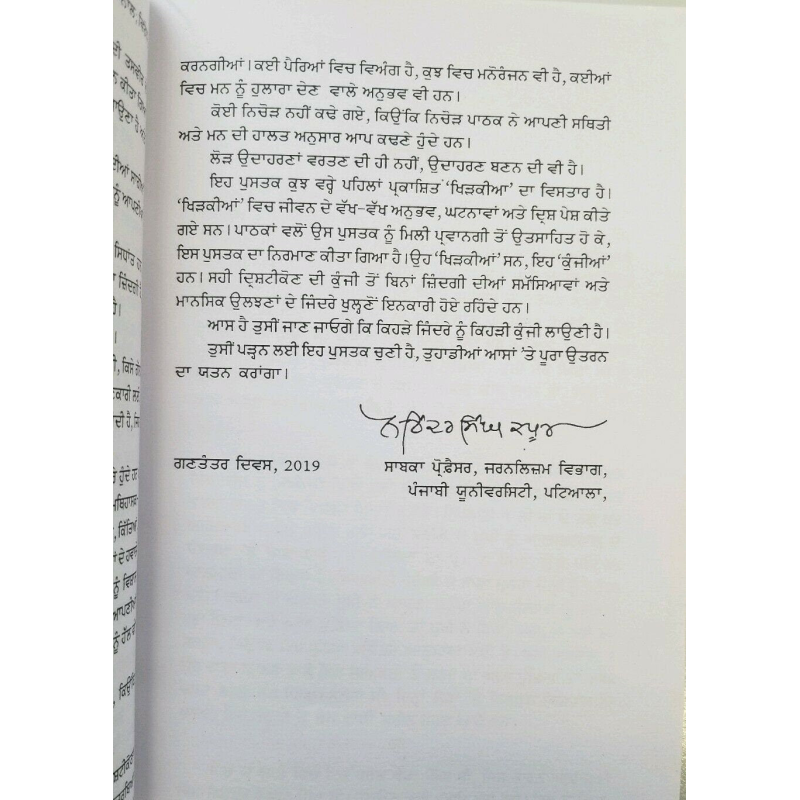 ਕਰਨਗੀਆਂ। ਕਈ ਪੈਰਿਆਂ ਵਿਚ ਵਿਅੰਗ ਹੈ, ਕੁਝ ਵਿਚ ਮਨੋਰੰਜਨ ਵੀ ਹੈ, ਕਈਆਂ
ਵਿਚ ਮਨ ਨੂੰ ਹੁਲਾਰਾ ਦੇਣ ਵਾਲੇ ਅਨੁਭਵ ਵੀ ਹਨ।
ਕੋਈ ਨਿਚੋੜ ਨਹੀਂ ਕਢੇ ਗਏ, ਕਿਉਂਕਿ ਨਿਚੋੜ ਪਾਠਕ ਨੇ ਆਪਣੀ ਸਥਿਤੀ
ਅਤੇ ਮਨ ਦੀ ਹਾਲਤ ਅਨੁਸਾਰ ਆਪ ਕਢਣੇ ਹੁੰਦੇ ਹਨ।
ਲੋੜ ਉਦਾਹਰਣਾਂ ਵਰਤਣ ਦੀ ਹੀ ਨਹੀਂ, ਉਦਾਹਰਣ ਬਣਨ ਦੀ ਵੀ ਹੈ।
ਇਹ ਪੁਸਤਕ ਕੁਝ ਵਰ੍ਹੇ ਪਹਿਲਾਂ ਪ੍ਰਕਾਸ਼ਿਤ 'ਖਿੜਕੀਆ' ਦਾ ਵਿਸਤਾਰ ਹੈ।
'ਖਿੜਕੀਆਂ' ਵਿਚ ਜੀਵਨ ਦੇ ਵੱਖ-ਵੱਖ ਅਨੁਭਵ, ਘਟਨਾਵਾਂ ਅਤੇ ਦ੍ਰਿਸ਼ ਪੇਸ਼ ਕੀਤੇ
ਗਏ ਸਨ। ਪਾਠਕਾਂ ਵਲੋਂ ਉਸ ਪੁਸਤਕ ਨੂੰ ਮਿਲੀ ਪ੍ਰਵਾਨਗੀ ਤੋਂ ਉਤਸਾਹਿਤ ਹੋ ਕੇ,
ਇਸ ਪੁਸਤਕ ਦਾ ਨਿਰਮਾਣ ਕੀਤਾ ਗਿਆ ਹੈ। ਉਹ 'ਖਿੜਕੀਆਂ' ਸਨ, ਇਹ 'ਕੁੰਜੀਆਂ'
ਹਨ। ਸਹੀ ਦ੍ਰਿਸ਼ਟੀਕੋਣ ਦੀ ਕੁੰਜੀ ਤੋਂ ਬਿਨਾਂ ਜ਼ਿੰਦਗੀ ਦੀਆਂ ਸਮੱਸਿਆਵਾਂ ਅਤੇ
ਮਾਨਸਿਕ ਉਲਝਣਾਂ ਦੇ ਜਿੰਦਰੇ ਖੁਲ੍ਹਣੋਂ ਇਨਕਾਰੀ ਹੋਏ ਰਹਿੰਦੇ ਹਨ।
ਆਸ ਹੈ ਤੁਸੀਂ ਜਾਣ ਜਾਓਗੇ ਕਿ ਕਿਹੜੇ ਜਿੰਦਰੇ ਨੂੰ ਕਿਹੜੀ ਕੁੰਜੀ ਲਾਉਣੀ ਹੈ।
ਤੁਸੀਂ ਪੜ੍ਹਨ ਲਈ ਇਹ ਪੁਸਤਕ ਚੁਣੀ ਹੈ, ਤੁਹਾਡੀਆਂ ਆਸਾਂ 'ਤੇ ਪੂਰਾ ਉਤਰਨ
ਦਾ ਯਤਨ ਕਰਾਂਗਾ।
ਨਰਿੰਦਰ ਸਿੰਘ ਕਪੂਰ
ਗਣਤੰਤਰ ਦਿਵਸ, 2019
ਸਾਬਕਾ ਪ੍ਰੋਫ਼ੈਸਰ, ਜਰਨਲਿਜ਼ਮ ਵਿਭਾਗ,
ਪੰਜਾਬੀ ਯੂਨੀਵਰਸਿਟੀ, ਪਟਿਆਲਾ,